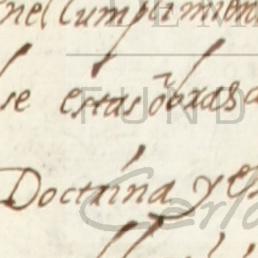 nel Cumplimien
se estas obras a
Doctrina y es